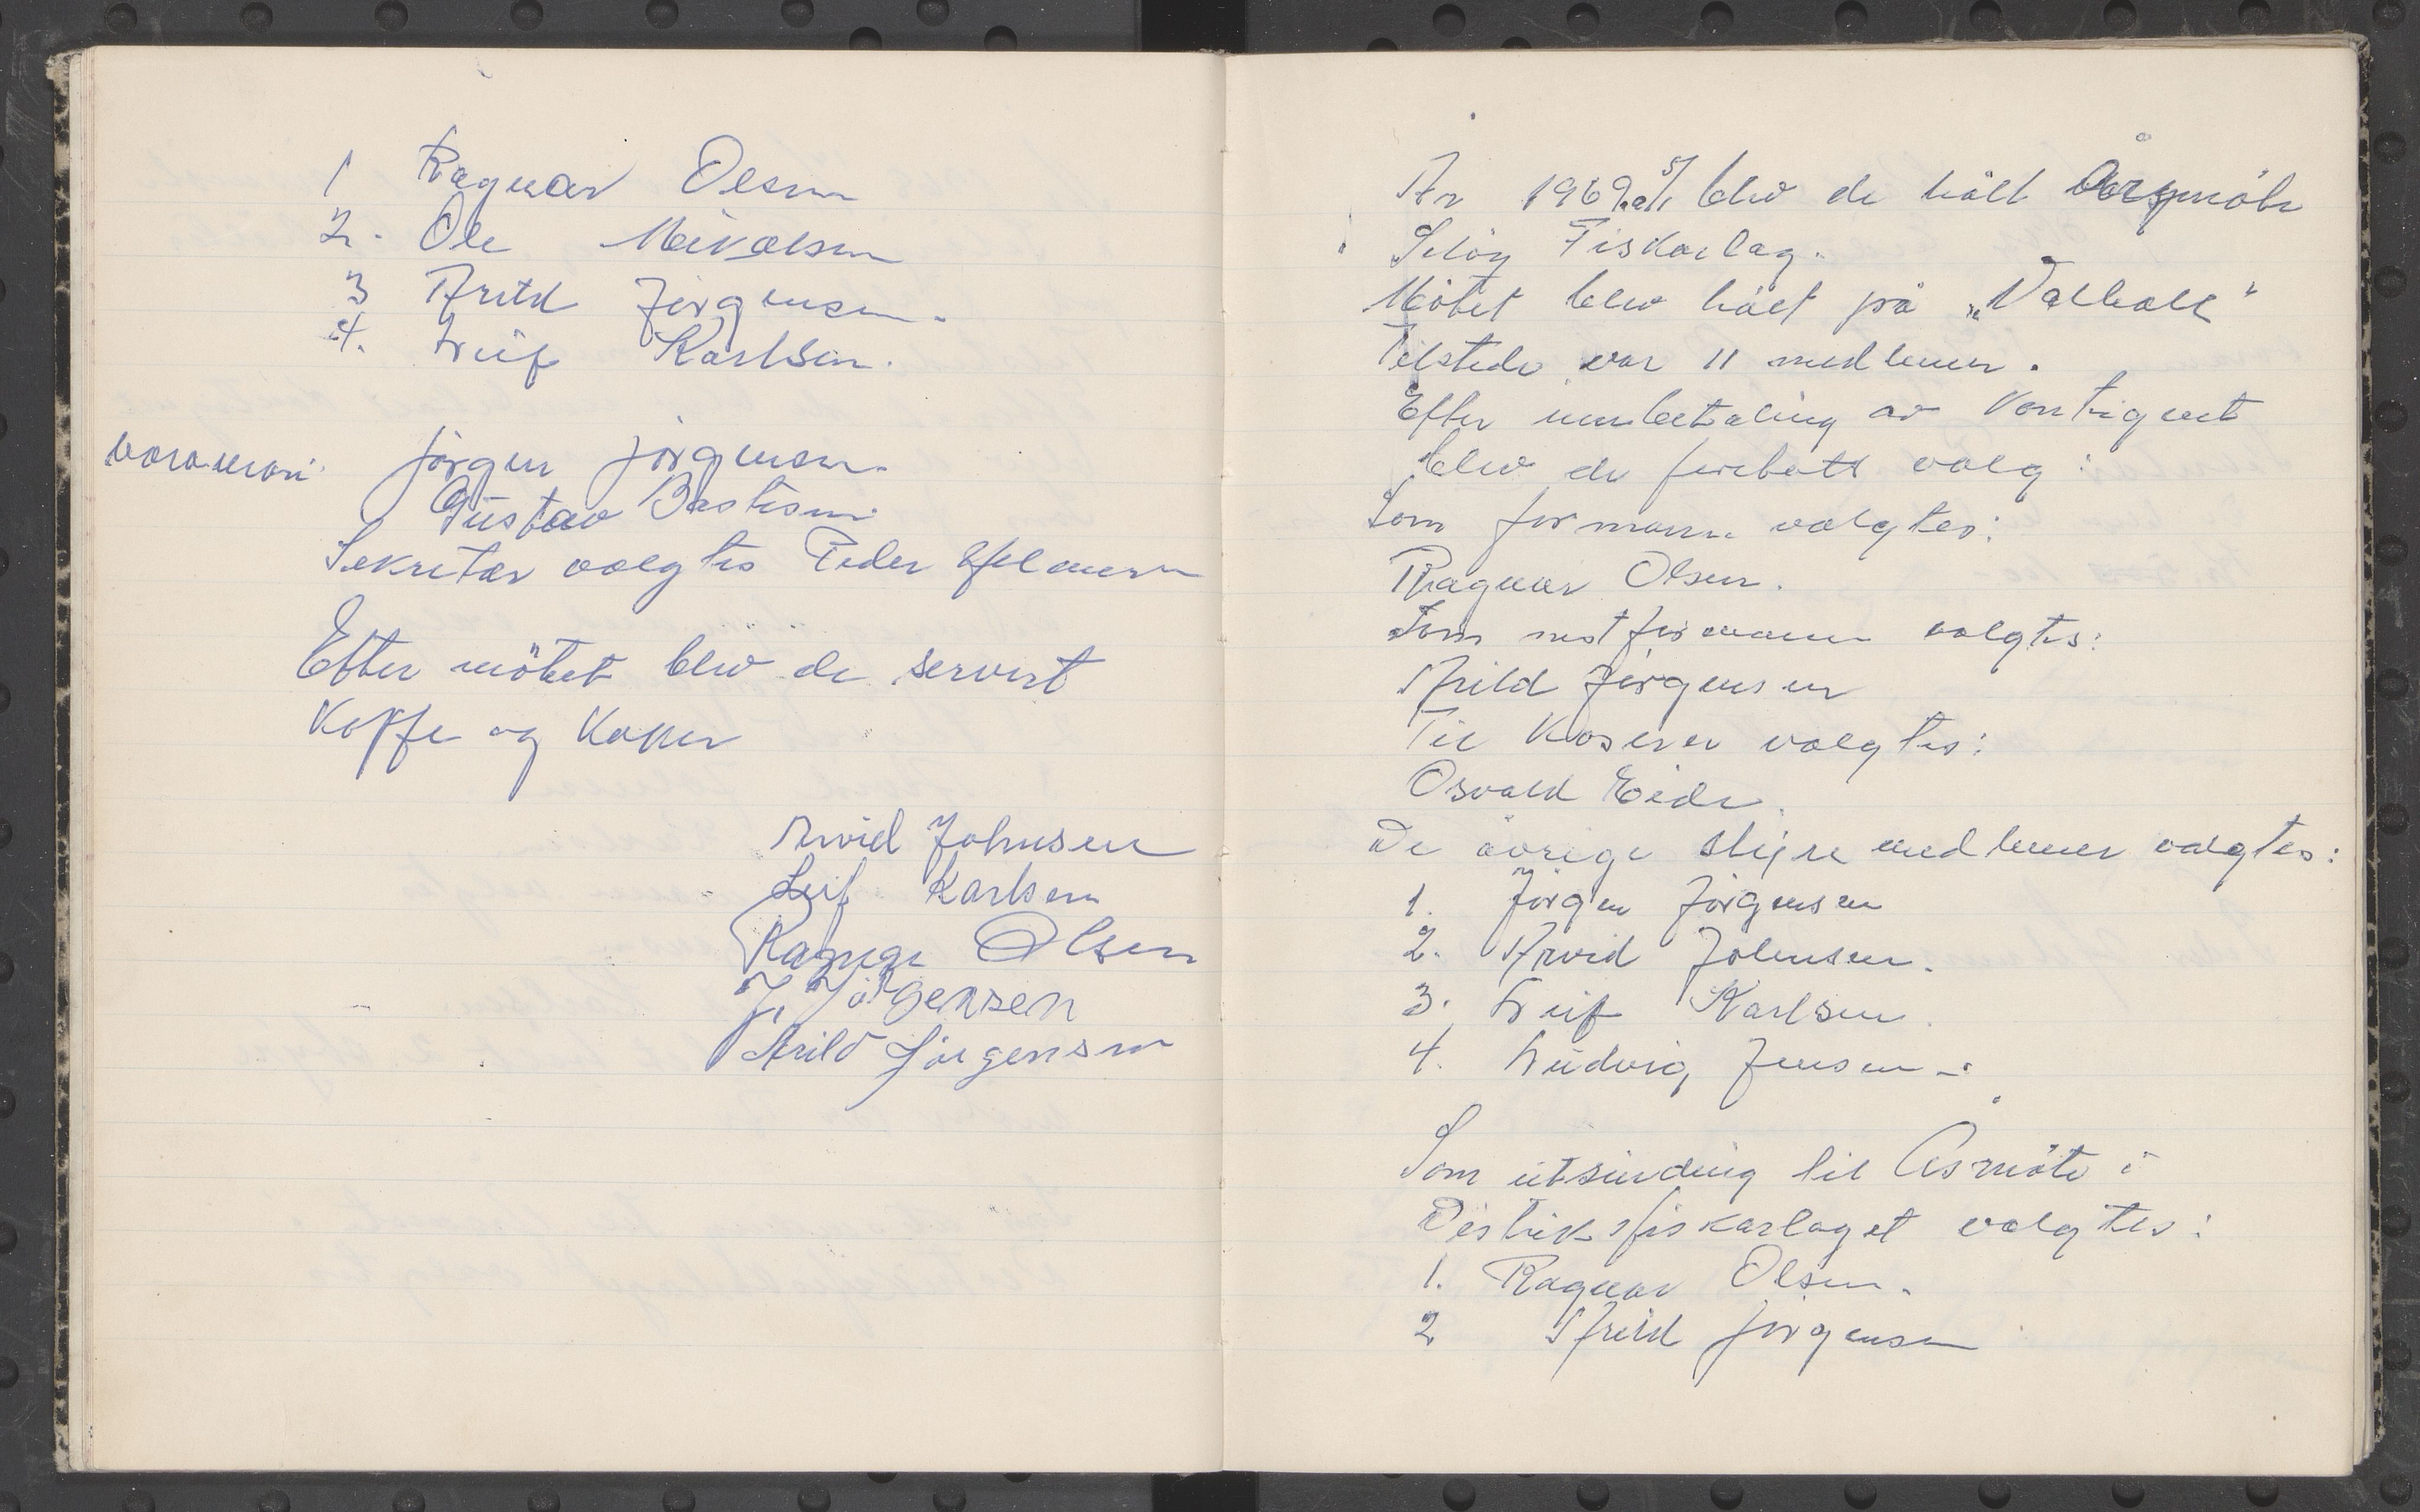 1 Ragnar Olsen
2. Ole Mikalsen
3 Arild Jørgensen.
4. Leif Karlsen.
varaman: Jørgen Jørgensen.
Gustav Bastesen
Sekretær valgtes Peder
Efter møtet blev de servert
Kaffe og Kaker
Arvid Johnsen
Leif Karlsen
Ragnar Olsen
J. Jørgensen
Arild Jørgensen
År 1969 blev de hålt Årsmøte
Fiskarlag.
Møtet blev hålt på „Valhall"
Tilstede var 11 medlemer.
Efter innbetaling av Kontigent
blev de foretatt valg:
Som formann valgtes:
Ragnar Olsen.
Som nestformann valgtes:
Arild Jørgensen
Til Kaserer valgtes:
Osvald Eide.
De øvrige styre medlemer valgtes:
1. Jørgen Jørgensen
2. Arvid Johnsen.
3. Leif Karlsen.
4. Ludvig Jensen -.
Som utsending til Årsmøte i
Distriksfiskarlaget valgtes:
1. Ragnar Olsen.
2 Arild Jørgensen